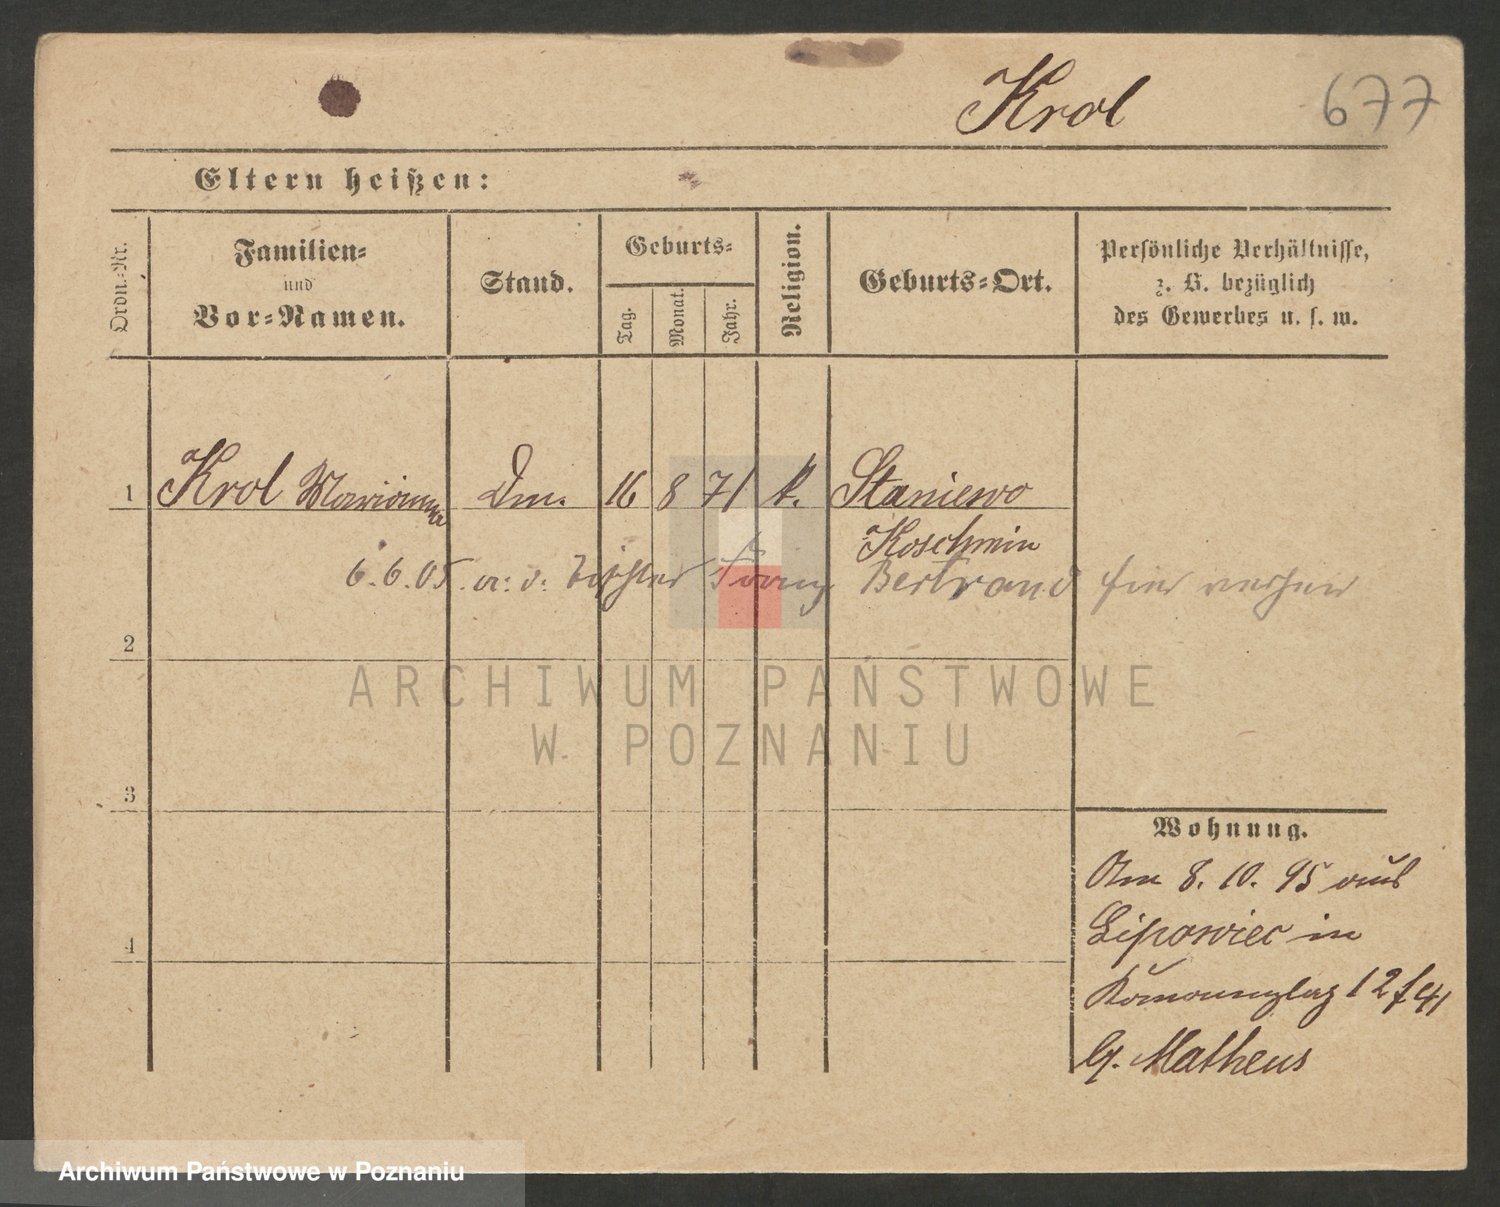 Krol 677
Eltern heißen:
Ordn.-Nr.
Familien-
und
Vor-Namen.
Stand.
Geburts-
Tag.
Monat.
Jahr.
Religion.
Geburts-Ort.
Persönliche Verhältnisse,
z. B. bezüglich
des Gewerbes u. s. w.
1 Krol Marianna Dm. 16 8 71 k. Staniewo
Koschmin
6.6.05. a. d. Tischler Franz Bertrand hier verh
2
3
4
Wohnung.
Am 8. 10. 95 aus
Lipowiec in
12
G. Matheus
ARCHIWUM PAŃSTWOWE
W POZNANIU
Archiwum Państwowe w Poznaniu